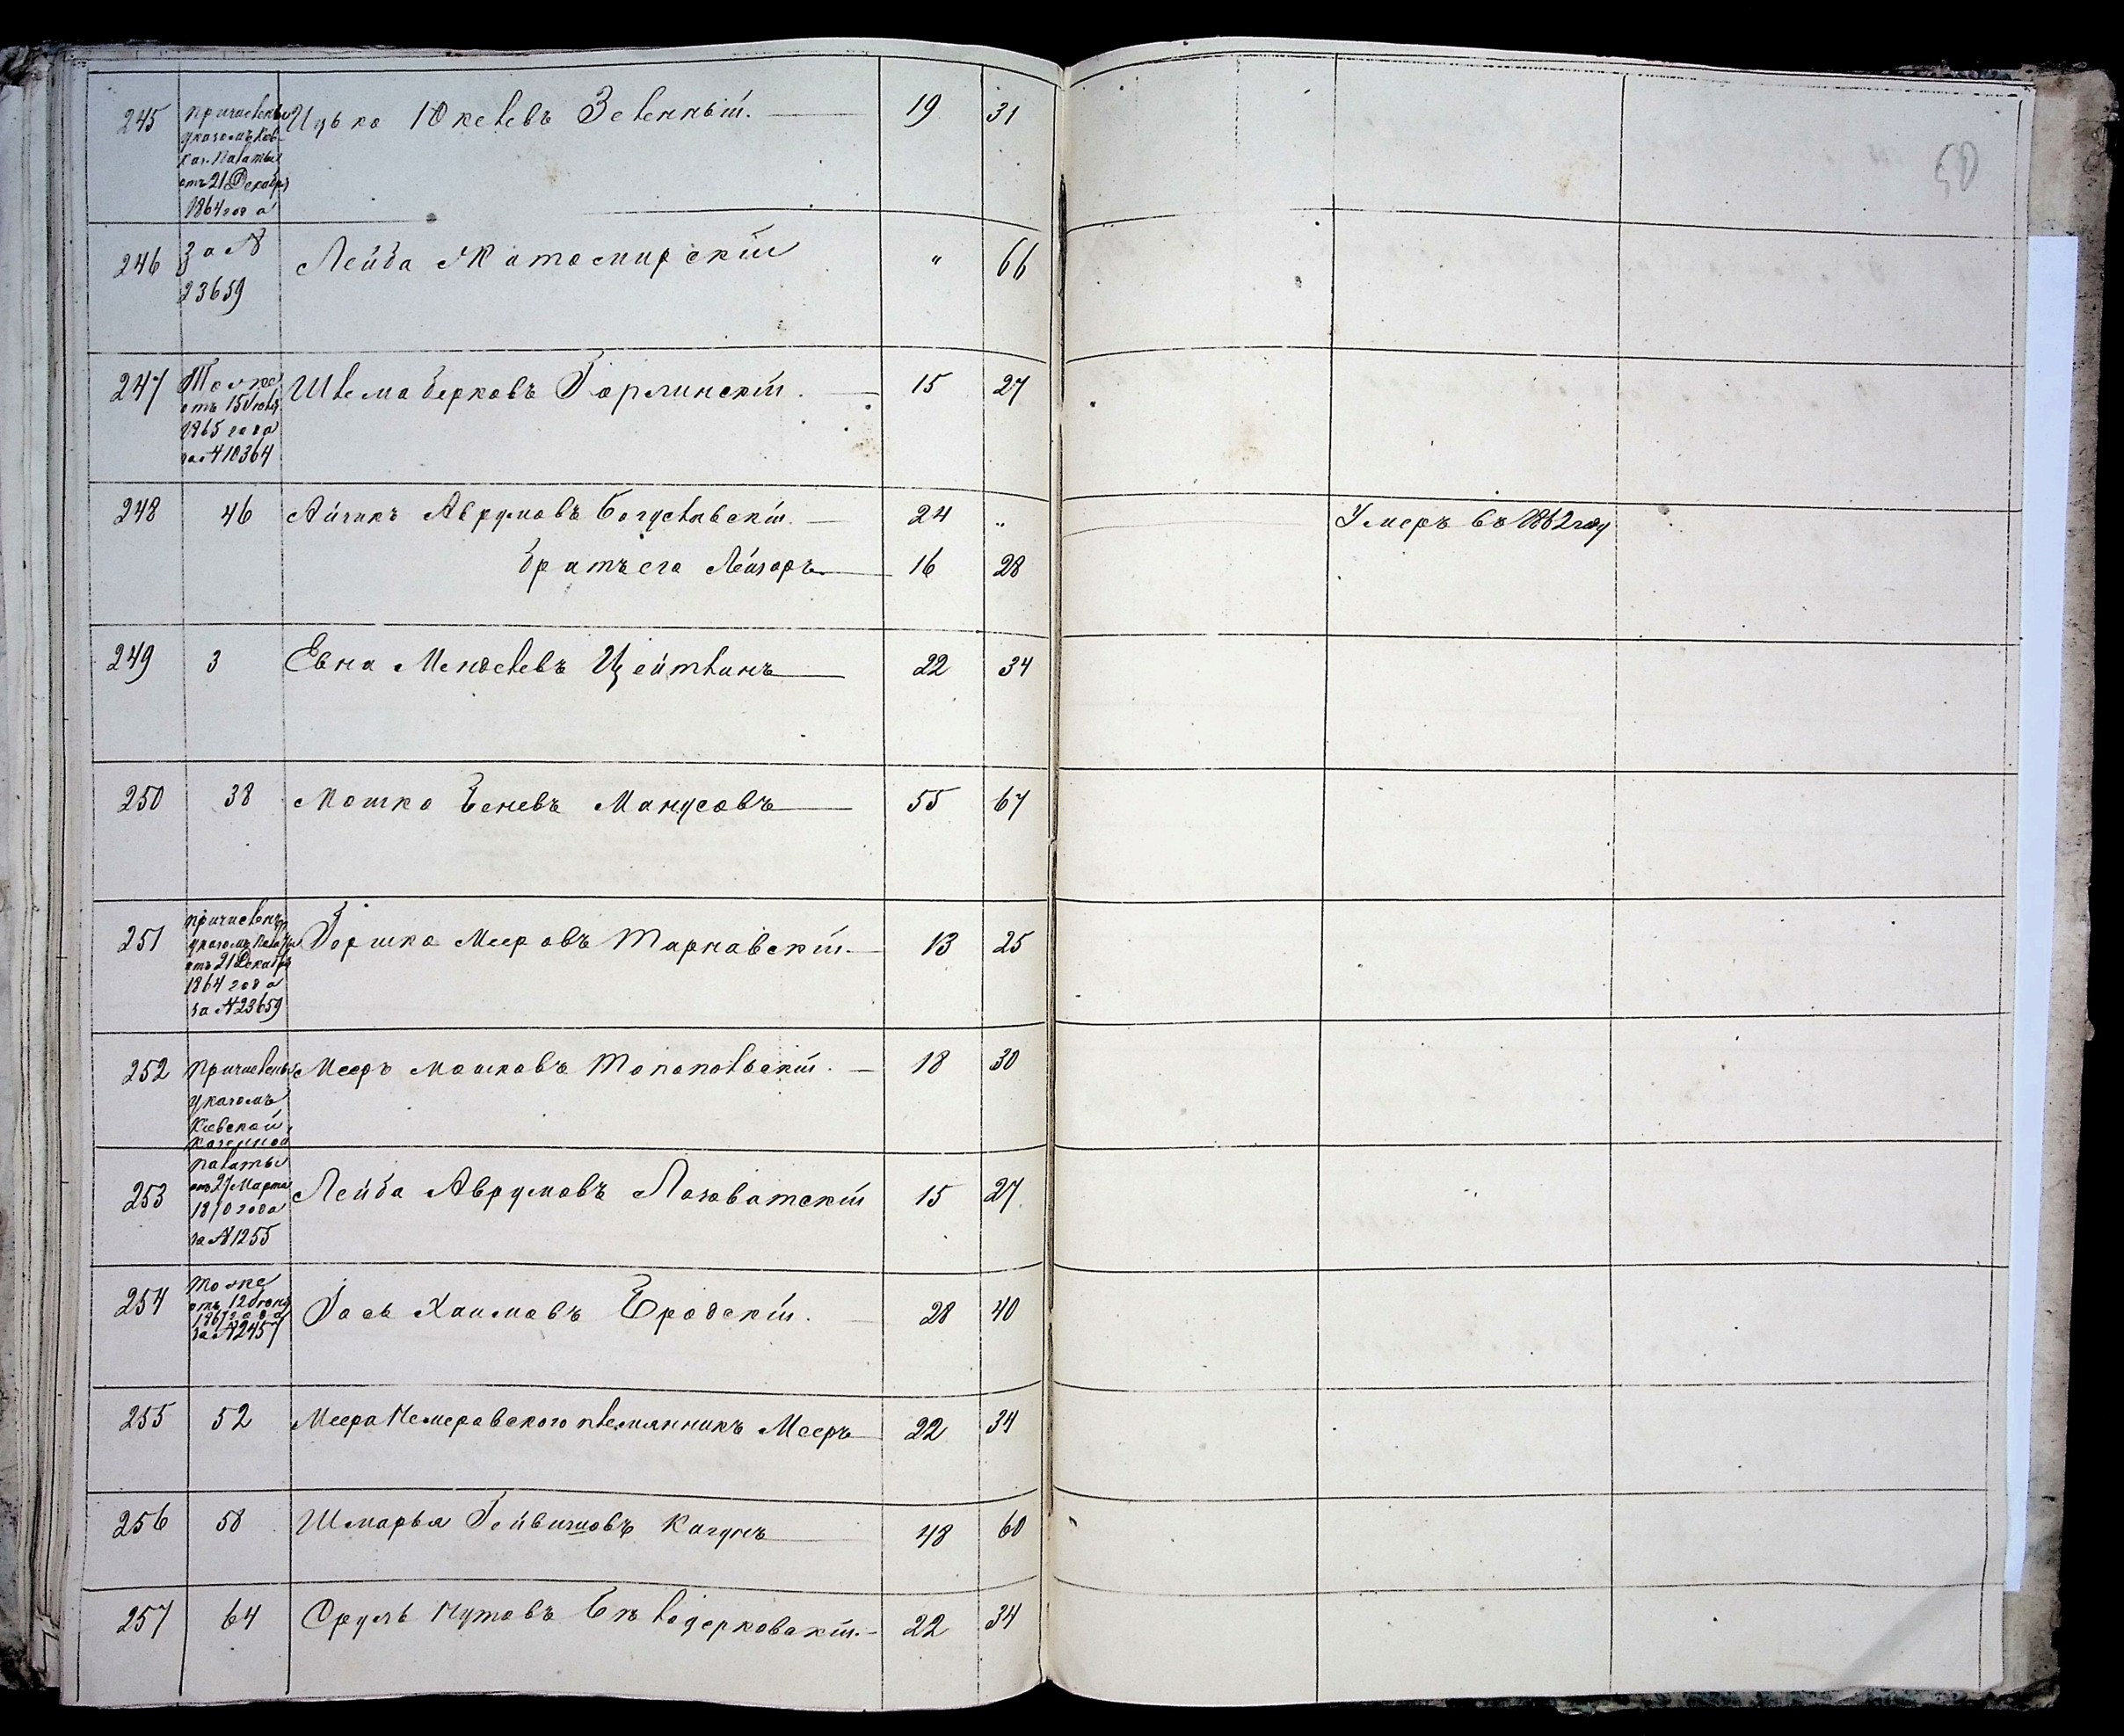 50
245 Причисленъ Ицько Юкелевъ Зеленный. 19 31
указомъ Кіев.
Каз. Палаты
отъ 21 Декабря
1864 года
246 За № Лейба Житомирскій " 66
23659
247 Тоже Шлема Берковъ Горлинскій. 15 27
отъ 15 Іюня
1865 года
за № 10364
248 46 Айзикъ Аврумовъ Богуславскій. 24 " Умеръ въ 1862 году
братъ его Лейзоръ 16 28
249 3 Евна Менделевъ Цейтлинъ 22 34
250 38 Мошко Беневъ Манусовъ 55 67
251 Причисленъ Гершко Мееровъ Тарнавскій. 13 25
указомъ Палаты
отъ 21 Декабря
1864 года
за № 23659
252 Причислены Мееръ Мошковъ Топопольскій. 18 30
указомъ
Кіевской
казенной
палаты
253 отъ 27 Марта Лейба Аврумовъ Лозоватскій 15 27
1870 года
за № 1255
254 Тоже Гось Хаимовъ Бродскій. 28 40
отъ 12 Іюня
1867 года
за № 2457
255 52 Меера Немеровского племянникъ Мееръ 22 34
256 58 Шмарья Гейвишовъ Кагунъ 48 60
257 64 Сруль Нутовъ Бѣлоцерковскій. 22 34